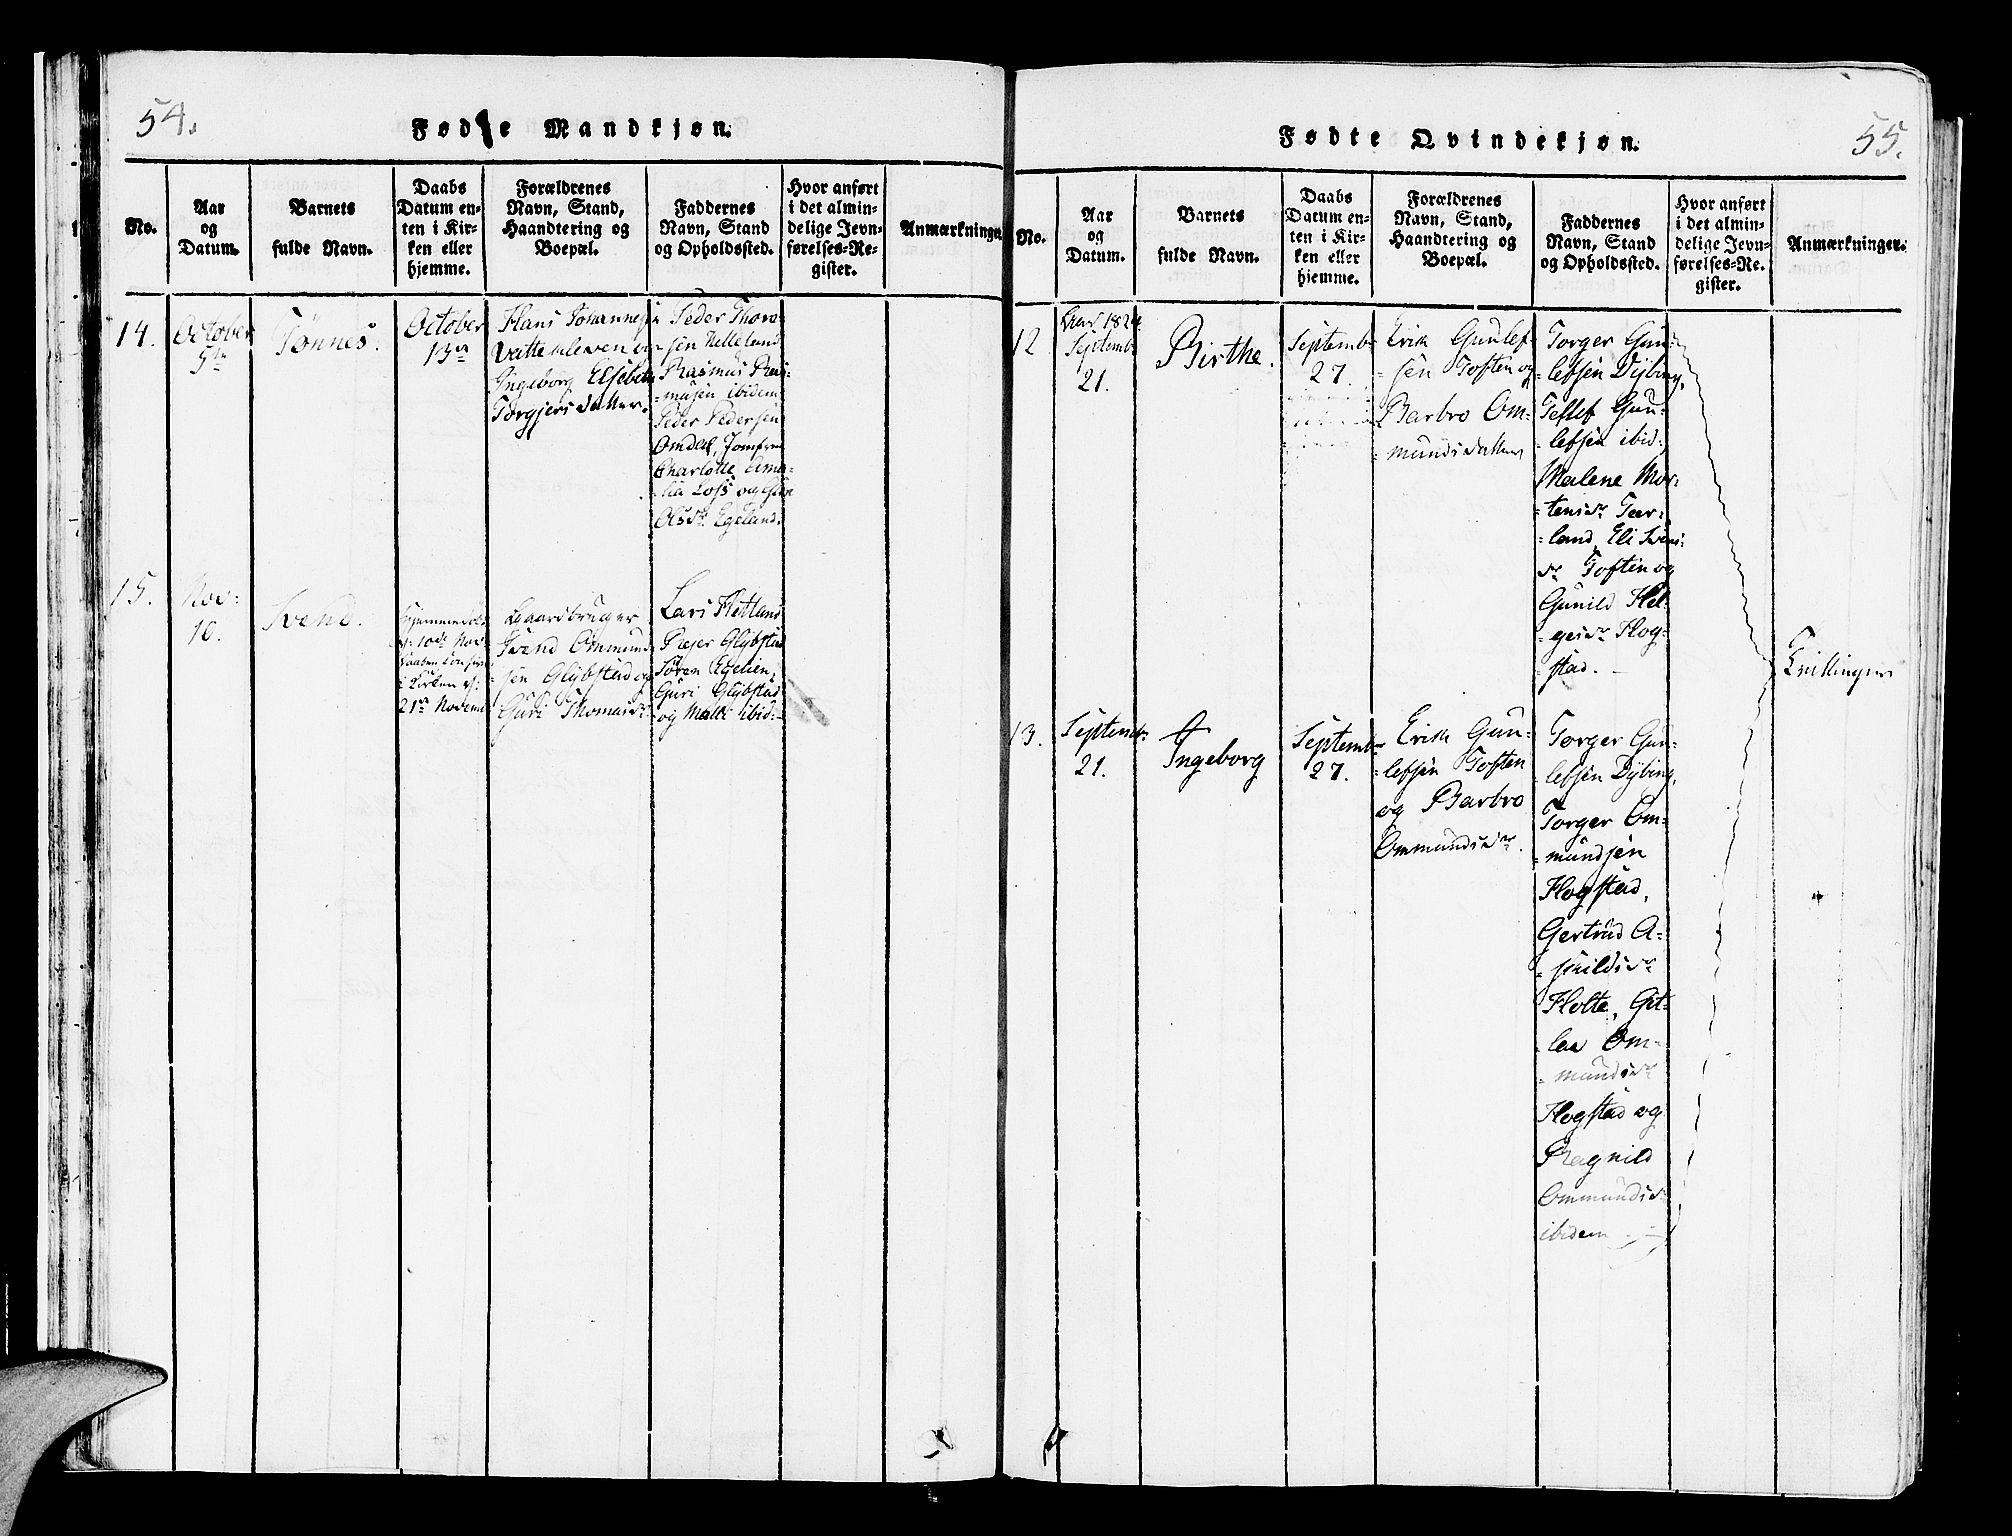 54.
Fødte Mandkjøn.
No.
Aar
og
Datum.
Barnets
fulde Navn.
Daabs
Datum en-
ten i Kir-
ken eller
hjemme.
Forældrenes
Navn, Stand,
Haandtering og
Boepæl.
Faddernes
Navn, Stand
og Opholdssted.
Hvor anført
i det almin-
delige Jevn-
førelses-Re-
gister.
Anmærkninger.
14.
October
5te
Tønnes.
October
13de
Hans Johannes-
VatteKleven og
Ingeborg Elsebeth
Torgjersdatter.
Peder Thors-
sen Helleland
Rasmus Ras-
musen ibidem
Peder Pedersen
Omdal, Jomfru
Charlotte Ama-
lia Loss og
Olsdr. Egeland.
15.
Nov:
10.
Svend.
Hjemmedøbt
d: 10de Nov:
i Kirken d:
21de Novemb
Gaardbruger
Svend Ommund
sen Glybstad og
Guri Thomasdr.
Lars Hetland
Peder Glybstad
Søren Egelien,
Guri Glybstad
og Malli ibid:
55.
Fødte Qvindekjøn.
No.
Aar
og
Datum.
Barnets
fulde Navn.
Daabs
Datum en-
ten i Kir-
ken eller
hjemme.
Forældrenes
Navn, Stand,
Haandtering og
Boepæl.
Faddernes
Navn, Stand
og Opholdssted.
Hvor anført
i det almin-
delige Jevn-
førelses-Re-
gister.
Anmærkninger.
12
1824
Septemb:
21.
Birthe.
Septemb:
27.
Erik Gunlef-
sen Toften og
Barbro Om-
mundsdatter
Torger Gun-
lefsen Dybing,
Tellef Gun-
lefsen ibid:
Malene Mor-
tensdr. Tær-
land, Eli Svens-
dr. Toften og
Gunild Hel-
gesdr. Hog-
stad.
Tvillinger
13.
Septemb:
21.
Ingeborg
Septemb:
27.
Erik Gun-
lefsen Toften
og Barbro
Ommundsdr.
Torger Gun-
lefsen Dybing,
Torger Om-
mundsen
Hogstad,
Gertrud A-
skildsdr
Holte, Git-
laa Om-
mundsdr
Hogstad og
Ragnild
Ommundsdr
ibidem